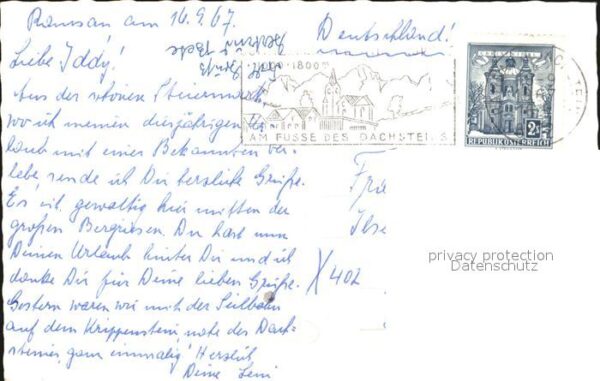 Ramsau am 16.9.67.
Deutschland!
Liebe Iddy!
Aus der schönen Steiermark,
wo ich meinen diesjährigen Ur
laub mit einer Bekannten ver
lebe, sende ich Dir herzliche Grüße.
Es ist gewaltig hier mitten der
großen Bergriesen. Du hast nun
Deinen Urlaub hinter Dir und ich
danke Dir für Deine lieben Grüße.
Gestern waren wir mit der Seilbahn
auf dem Krippenstein, nahe des Dach-
steines, ganz einmalig! Herzlich
Deine Leni
1800m
AM FUSSE DES DACHSTEINS
2S
REPUBLIK ÖSTERREICH
Frau
Ilse
X 402
privacy protection
Datenschutz